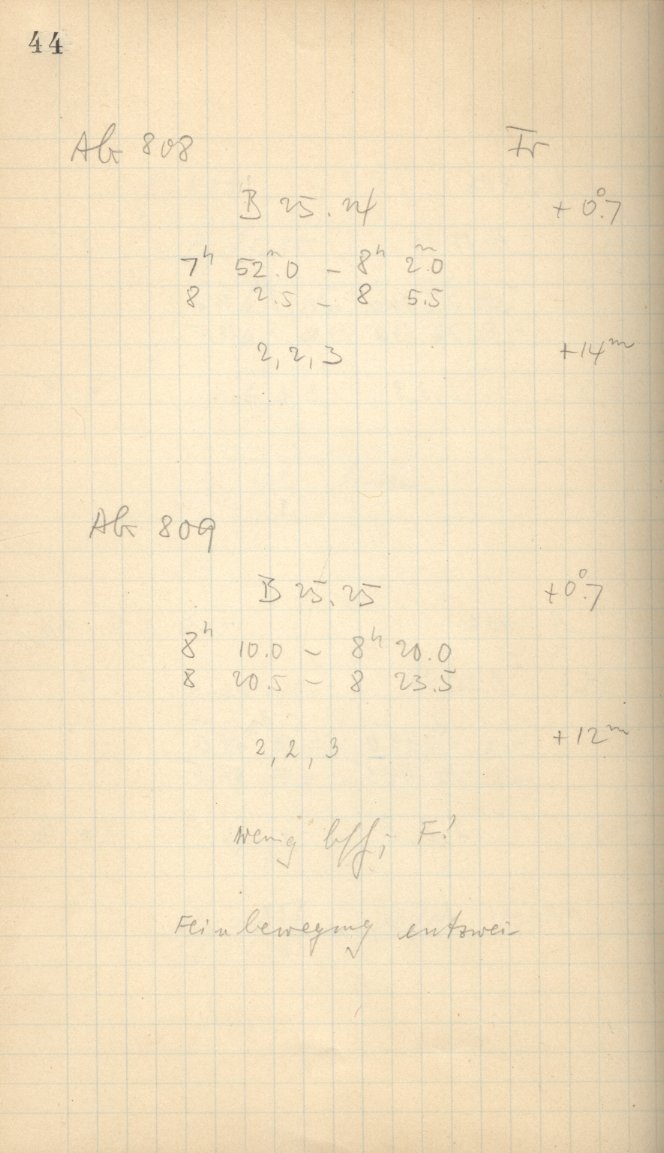 44
Ab 808 Fr
B 25.24 +0°.7
7ʰ 52ᵐ.0 – 8ʰ 2ᵐ.0
8 2.5 – 8 5.5
2, 2, 3 +14ᵐ
Ab 809
B 25.25 +0°.7
8ʰ 10.0 – 8ʰ 20.0
8 20.5 – 8 23.5
2, 2, 3 +12ᵐ
wenig F!
Feinbewegung entzwei